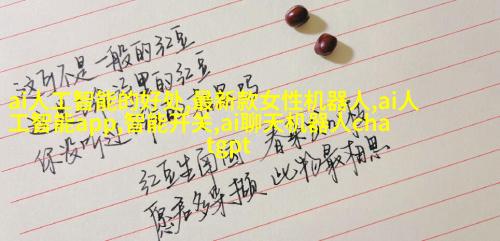 这可不是一般的红豆
这里的红豆
ai人工智能的好处,最新款女性机器人,ai人
工智能app,智能开关,ai聊天机器人cha
tgpt
你没听过
红豆生南国 春来
愿君多采撷 此物最相思